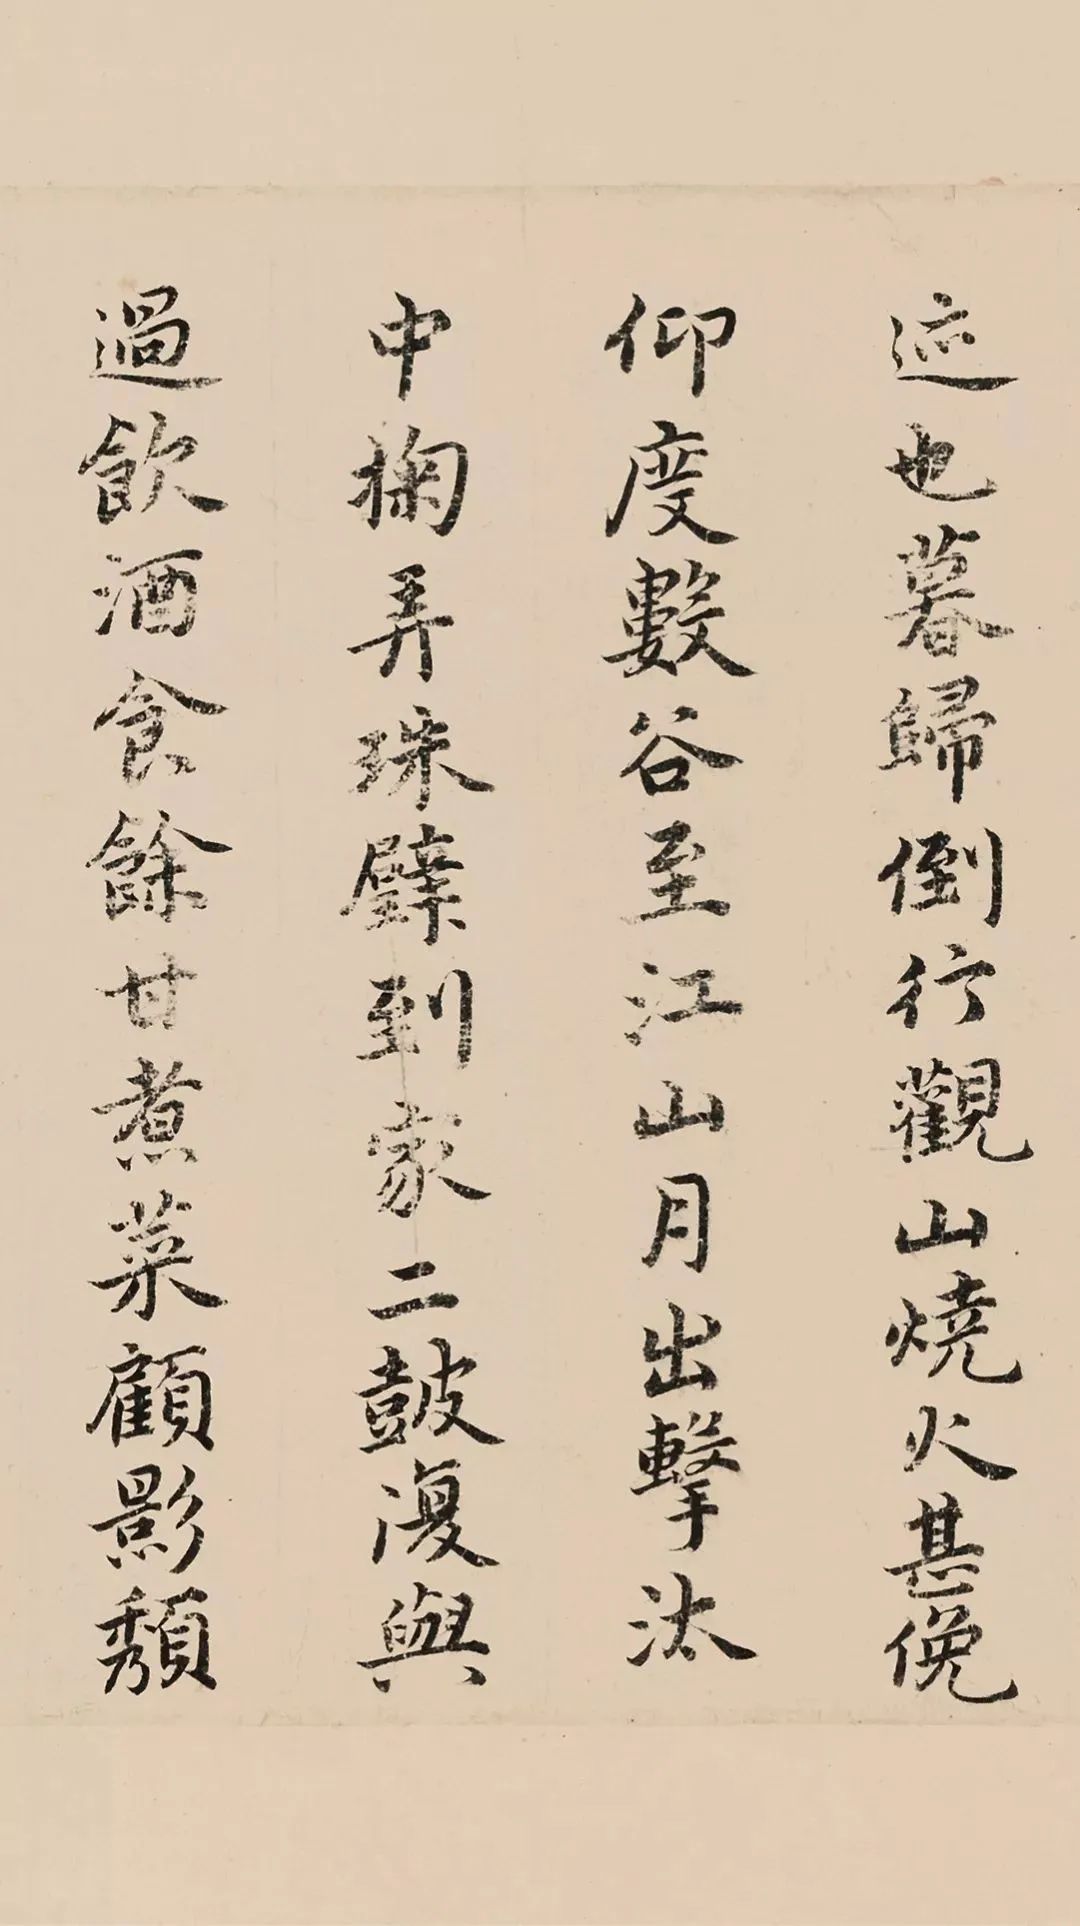 迹也暮歸倒行觀山燒火甚俛
仰度數谷至江山月出擊汰
中掬弄珠璧到家二鼓復與
過飲酒食餘甘煮菜顧影頹